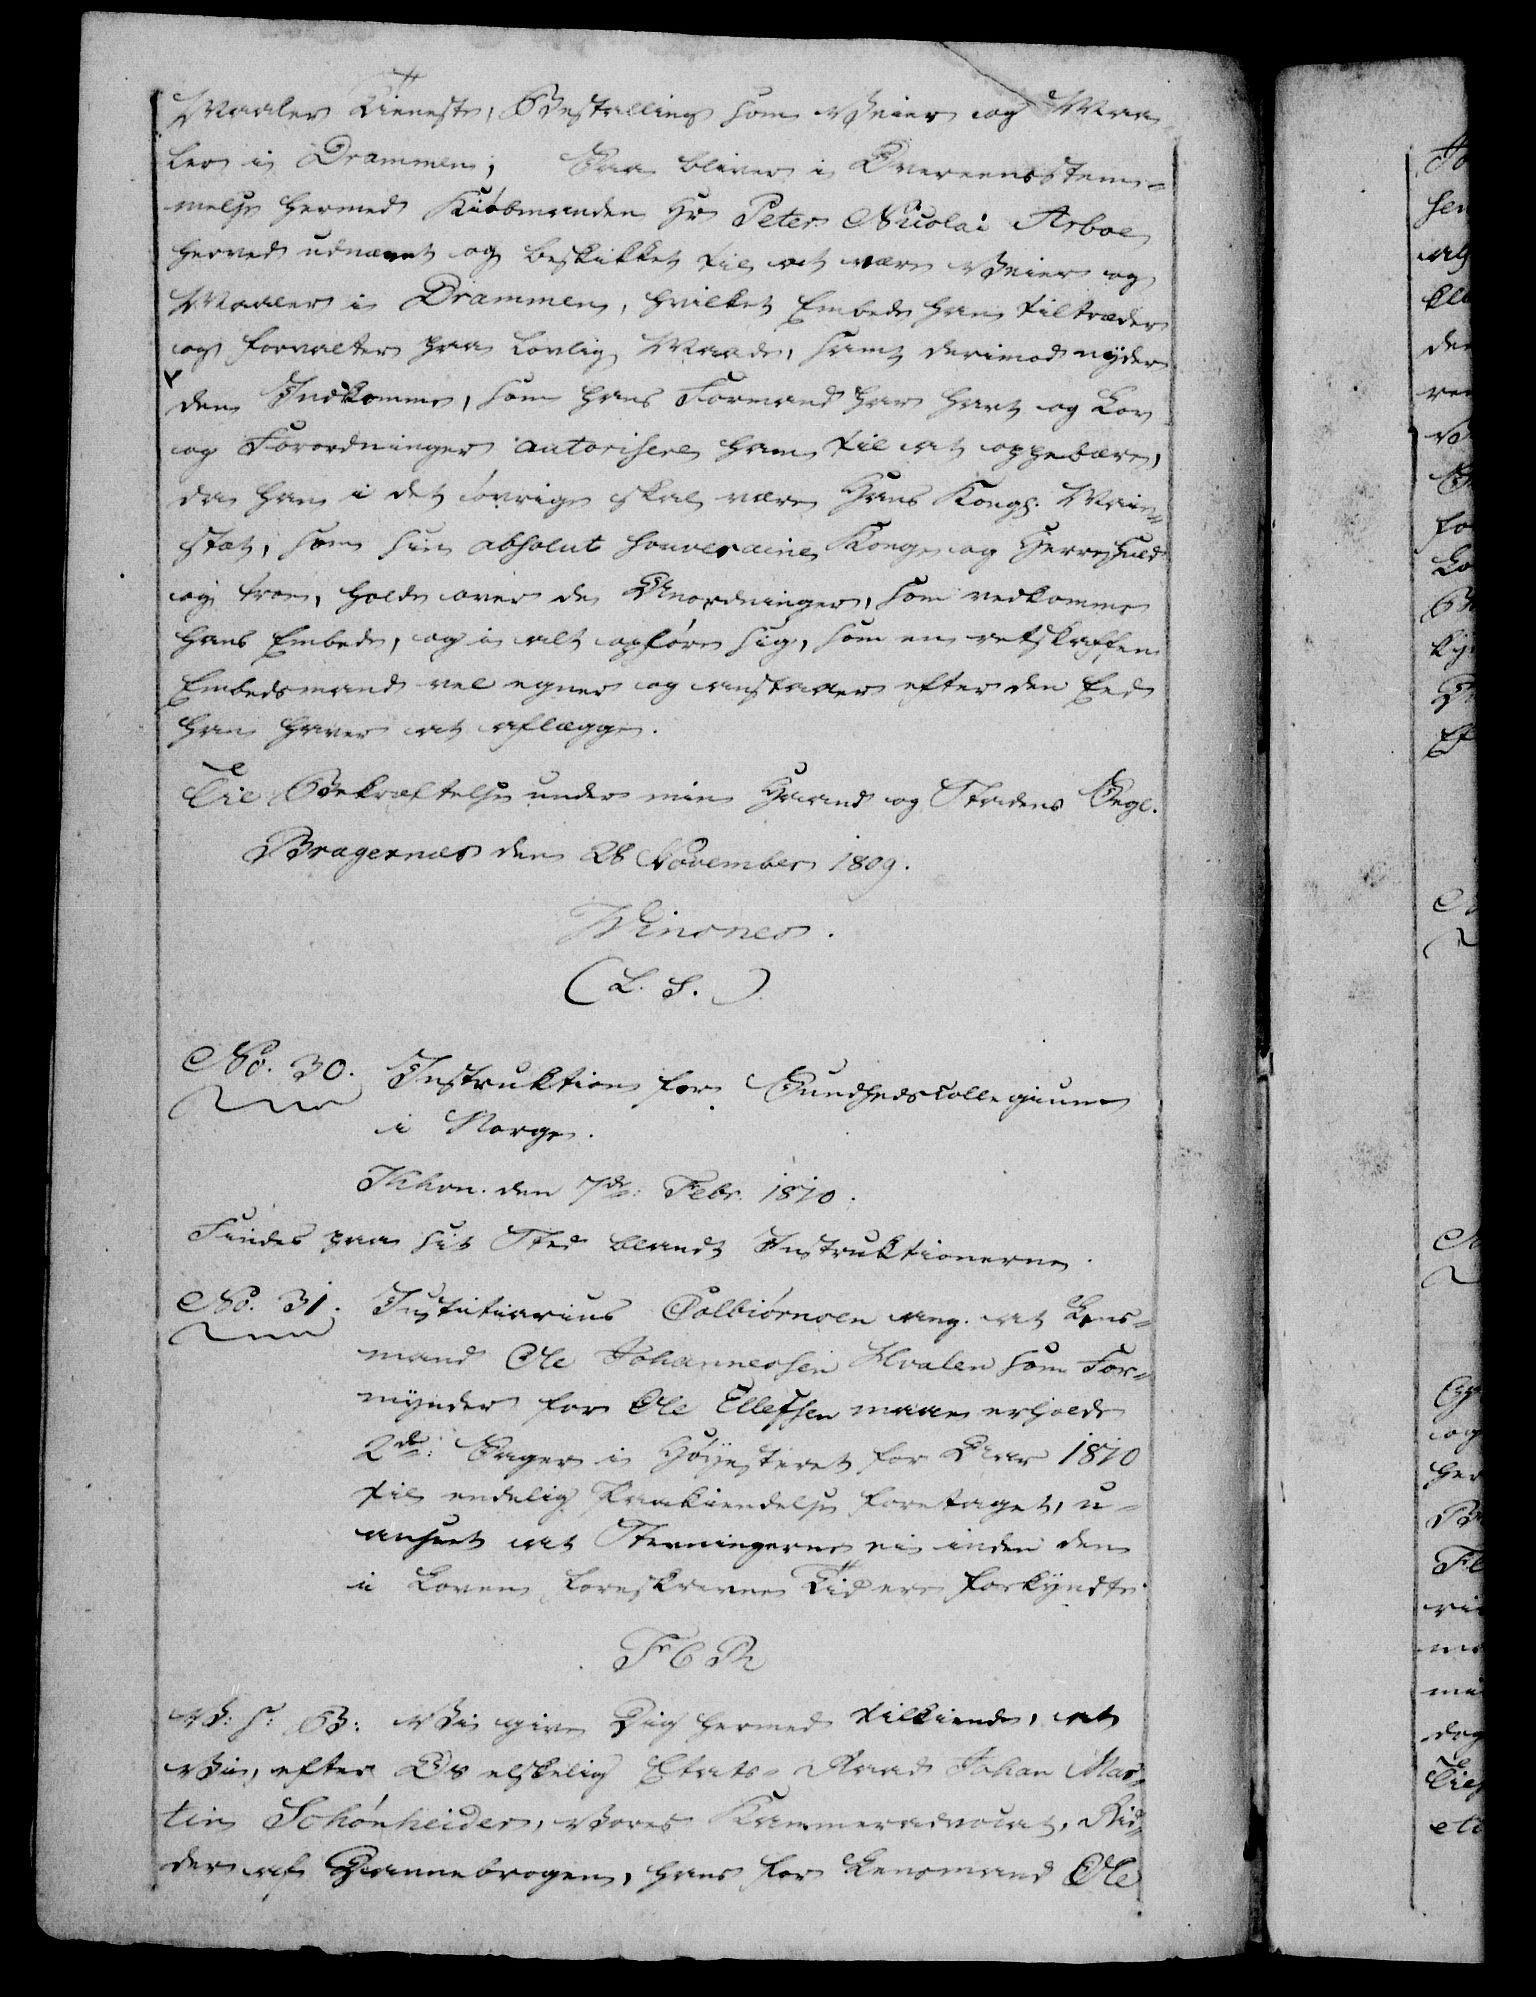 Maaler Tieneste, Bestalling som Veier og Maa-
ler i Drammen; Saa bliver i Overeensstem-
melse hermed Kiøbmanden Hr Peter Nicolai Arboe
herved udnævnt og beskikket til at være Veier og
Maaler i Drammen, hvilket Embede han tiltræder
og forvalter paa lovlig Maade, samt derimod nyder
den Indkomme, som hans Formand har havt og Lov
og Forordninger autoriserer ham til at oppebære,
da han i det øvrige skal være Hans Kongl. Maie-
stæt, som sin absolut souveraine Konge og Herre huld
og troe, holde over de Anordninger, som vedkomme
hans Embede, og i alt opføre sig, som en retskaffen
Embedsmand vel egner og anstaaer efter den Eed
han haver at aflægge.
Til Bekræftelse under min Haand og Stadens Segl.
Bragernæs den 28 November 1809.
Winsnes.
(L. S.)
No. 30. Instruktion for Sundhedscollegium
i Norge.
Khvn. den 7de: Febr. 1810.
Findes paa sit Sted blandt Instruktionerne.
No. 31. Justitiarius Colbiørnsen ang. at Lens-
mand Ole Johannessen Hvalen som For-
mynder for Ole Ellefsen maae erholde
2de: Sager i Høyesteret for Aar 1810
til endelig Paakiendelse foretaget, u-
anseet at Stevningerne ei inden den
i Loven foreskrevne Tid ere forkyndte.
F 6 R
V: S: G: Vi give Dig hermed tilkiende, at
Vi, efter Os elskelig Etats-Raad Johan Mar-
tin Schønheider, Vores Kammeradvocat, Rid-
der af Dannebrogen, hans for Lensmand Ole